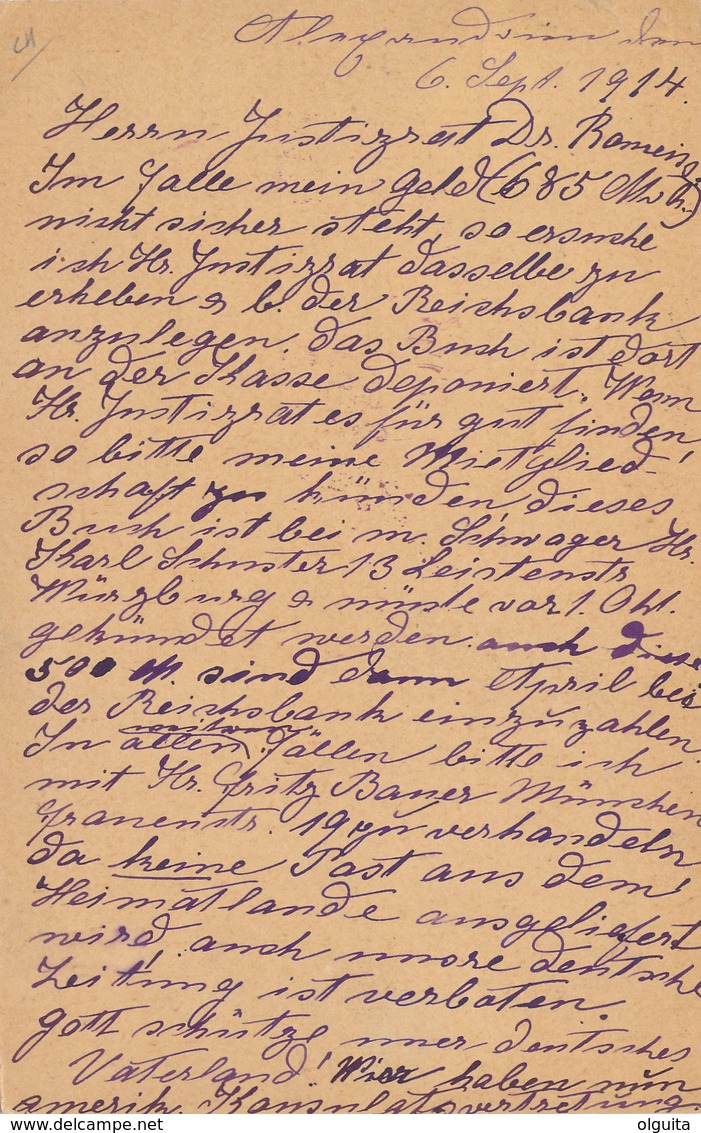 Alexandrien den
6. Sept. 1914.
Herrn Justizrat Dr.
Im Falle mein Geld (685 Mk.)
nicht sicher steht, so ersuche
ich Hr. Justizrat dasselbe zu
erheben & b. der Reichsbank
anzulegen. das Buch ist dort
an der Kasse deponiert. Wenn
Hr. Justizrat es für gut finden,
so bitte meine Mietglied-
schaft zu künden, dieses
Buch ist bei m. Schwager Hr.
Karl Schuster 13 Leistenstr.
Würzburg & müste vor 1. Okt.
gekündet werden. auch diese
500 M. sind dann April bei
der Reichsbank einzuzahlen.
In allen Fällen bitte ich
mit Hr. Fritz Bauer München
Frauenstr. 19 zu verhandeln
da keine Post aus dem
Heimatlande ausgeliefert
wird, auch unsre deutsche
Zeitung ist verboten.
Gott schütze unser deutsches
Vaterland! Wier haben nun
amerik. Konsulatsvertretung.
delcampe.net
olguita